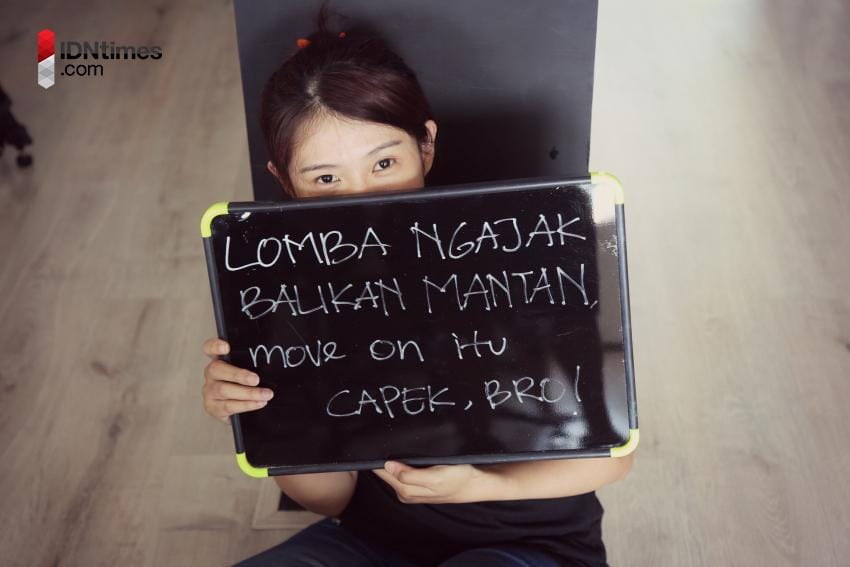 IDNtimes
.com
LOMBA NGAJAK
BALIKAN MANTAN,
move on itu
CAPEK, BRO!